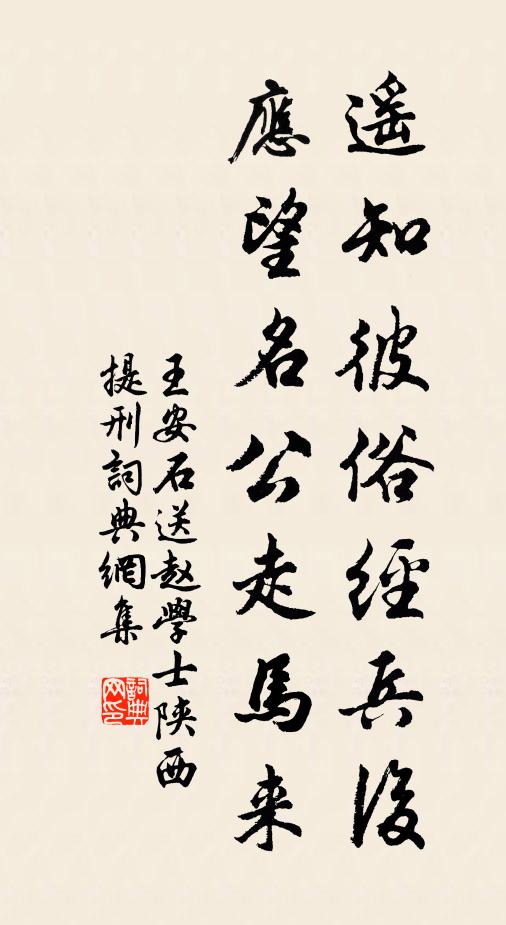 遥知彼俗經兵後
應望名公走馬来
王安石送赵學士陕西
提刑詞典網集
詞典
网印